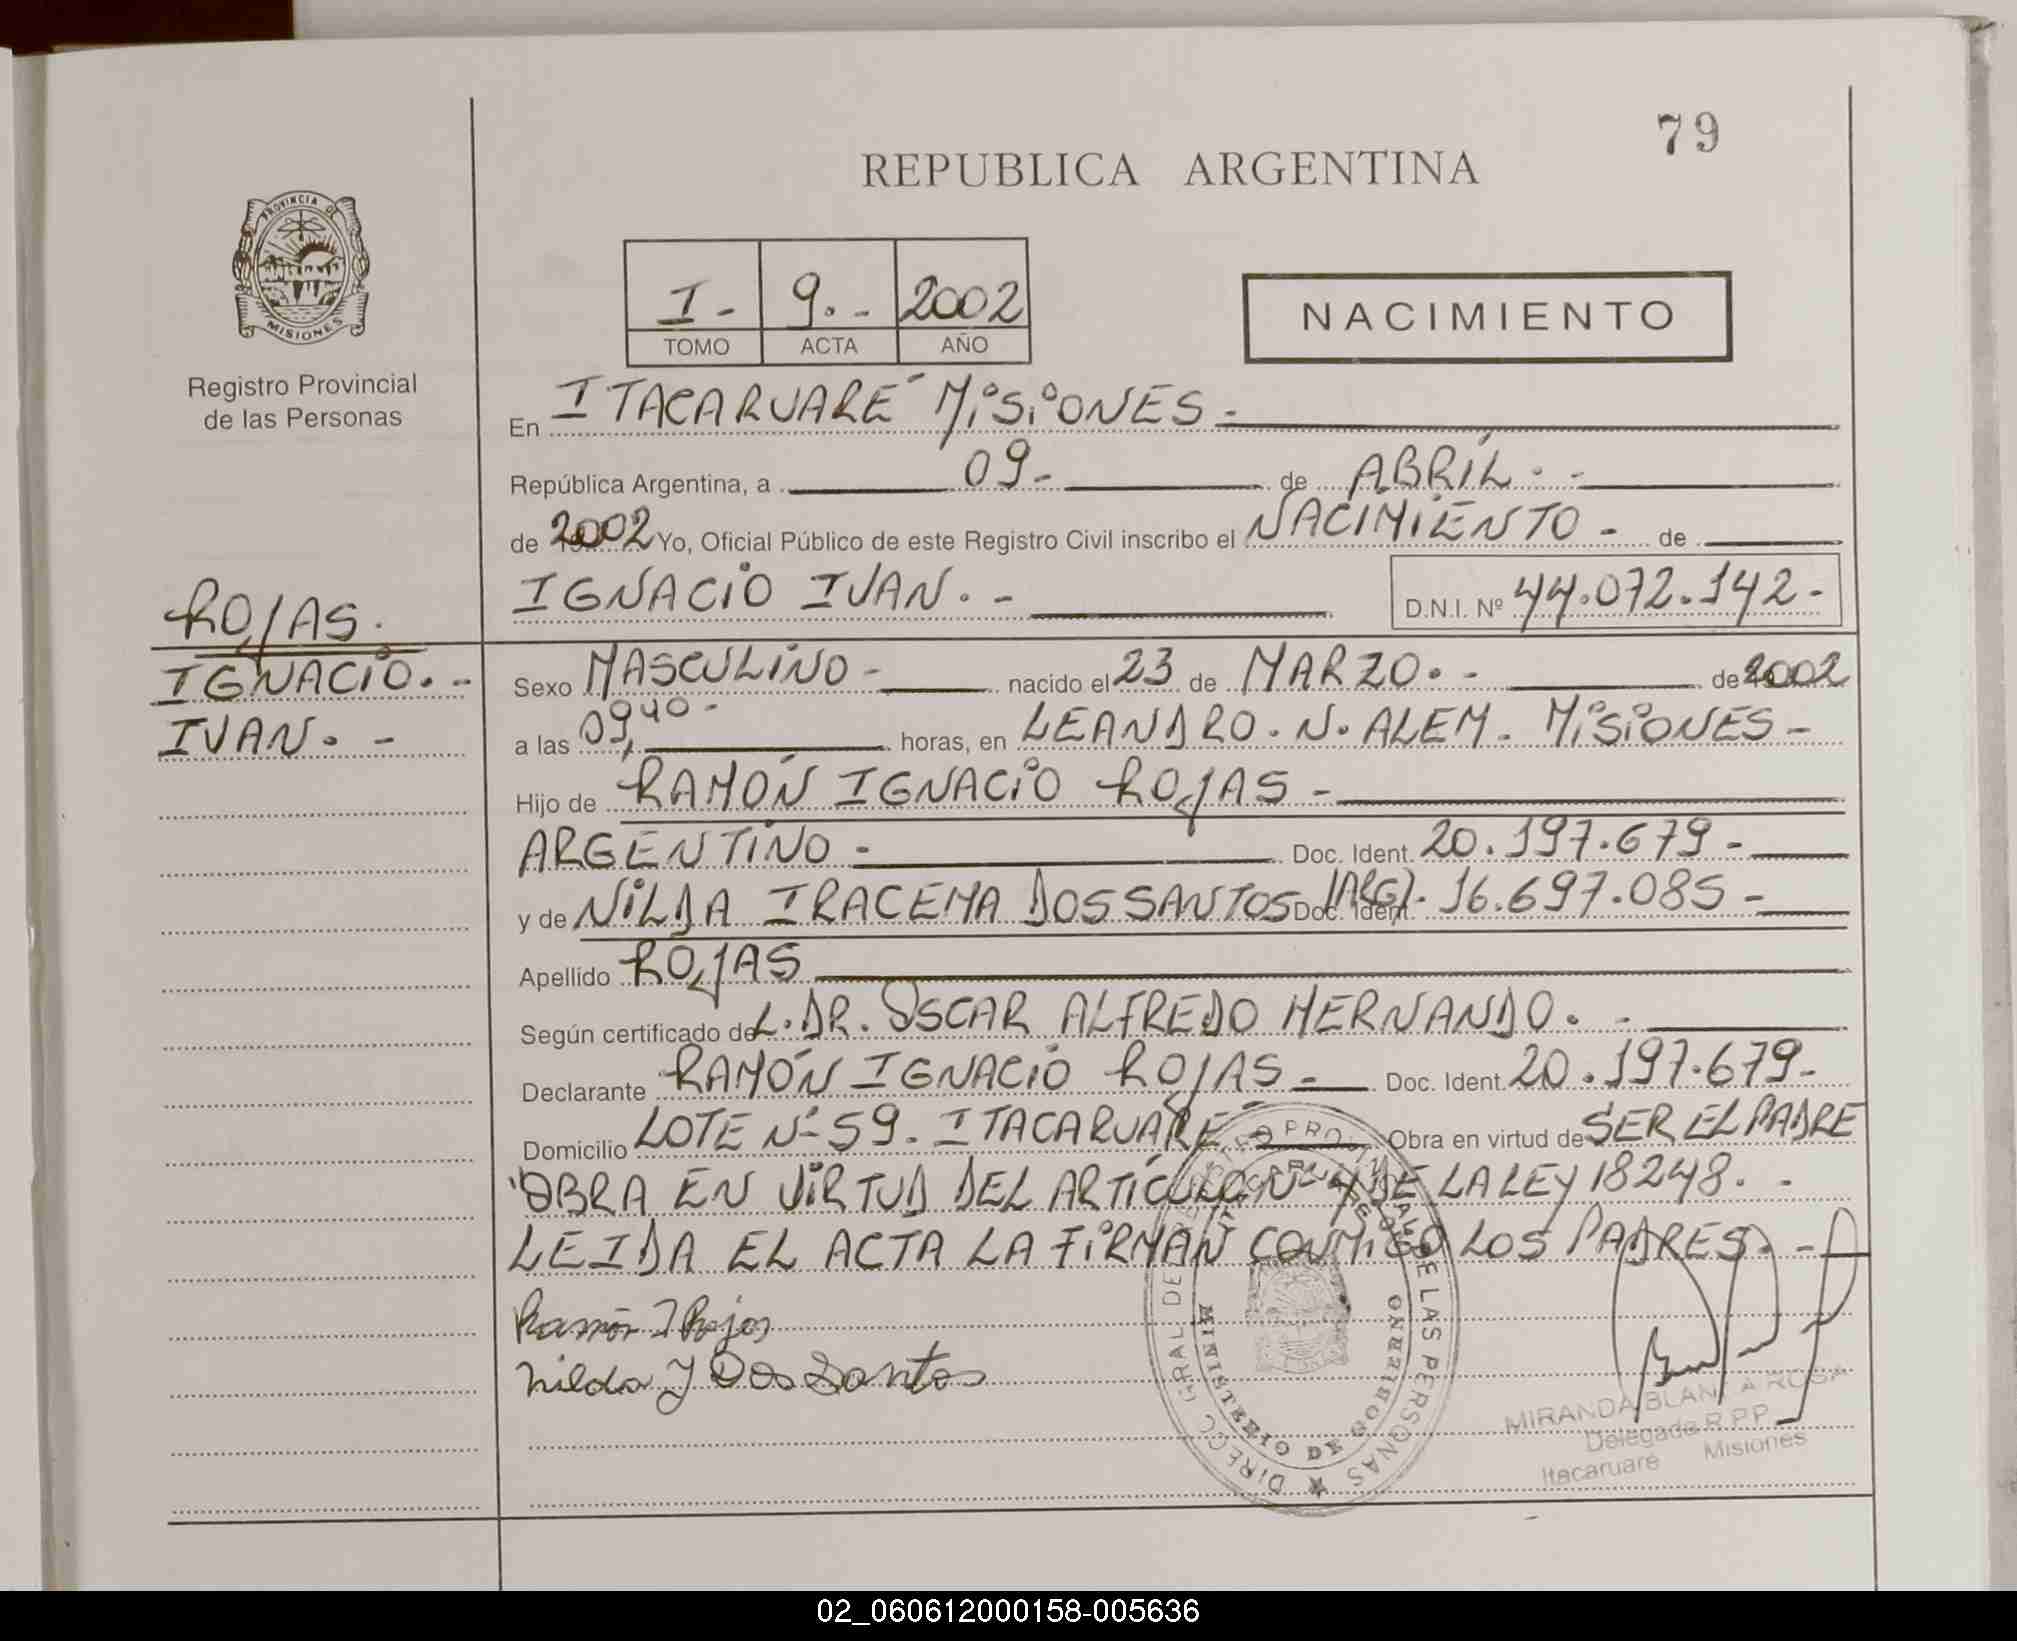 79
REPUBLICA ARGENTINA
PROVINCIA DE
MISIONES
Registro Provincial
de las Personas
I - 9. - 2002
TOMO ACTA AÑO
NACIMIENTO
En ITACARUARÉ MiSiONES -
República Argentina, a 09 - de ABRIL . -
de 2002 Yo, Oficial Público de este Registro Civil inscribo el NACIMIENTO - de
IGNACIO IVAN . - D.N.I. Nº 44.072.142 -
ROJAS.
IGNACIO. -
IVAN. -
Sexo MASCULINO - nacido el 23 de MARZO. - de 2002
a las 09,40 - horas, en LEANDRO. N. ALEM. MiSiONES -
Hijo de RAMÓN IGNACIO ROJAS -
ARGENTINO - Doc. Ident. 20.197.679 -
y de NILDA IRACEMA DOS SANTOS (ARG). Doc. Ident. 16.697.085 -
Apellido ROJAS
Según certificado de L. DR. OSCAR ALFREDO HERNANDO. -
Declarante RAMÓN IGNACIO ROJAS - Doc. Ident. 20.197.679 -
Domicilio LOTE Nº 59. ITACARUARÉ - Obra en virtud de SER EL PADRE
OBRA EN VIRTUD DEL ARTÍCULO Nº 4 DE LA LEY 18248. -
LEIDA EL ACTA LA FIRMAN CONMIGO LOS PADRES. -
Ramón I Rojas
Nilda Y Dos Santos
DE LAS PERSONAS
MINISTERIO DE GOBIERNO
MIRANDA BLANCA ROSA
Delegada R.P.P.
Itacaruaré Misiones
02_060612000158-005636